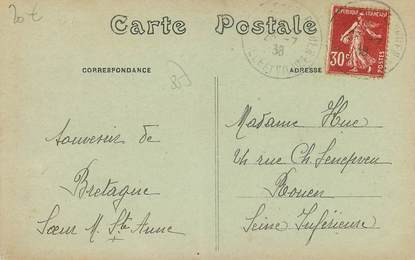 20 €
Carte Postale
CORRESPONDANCE
ADRESSE
REPUBLIQUE FRANÇAISE
30c
POSTES
38
Souvenir de
Bretagne
Sœur M. Ste Anne
Madame Hue
rue Ch. Lenepveu
Rouen
Seine Inférieure